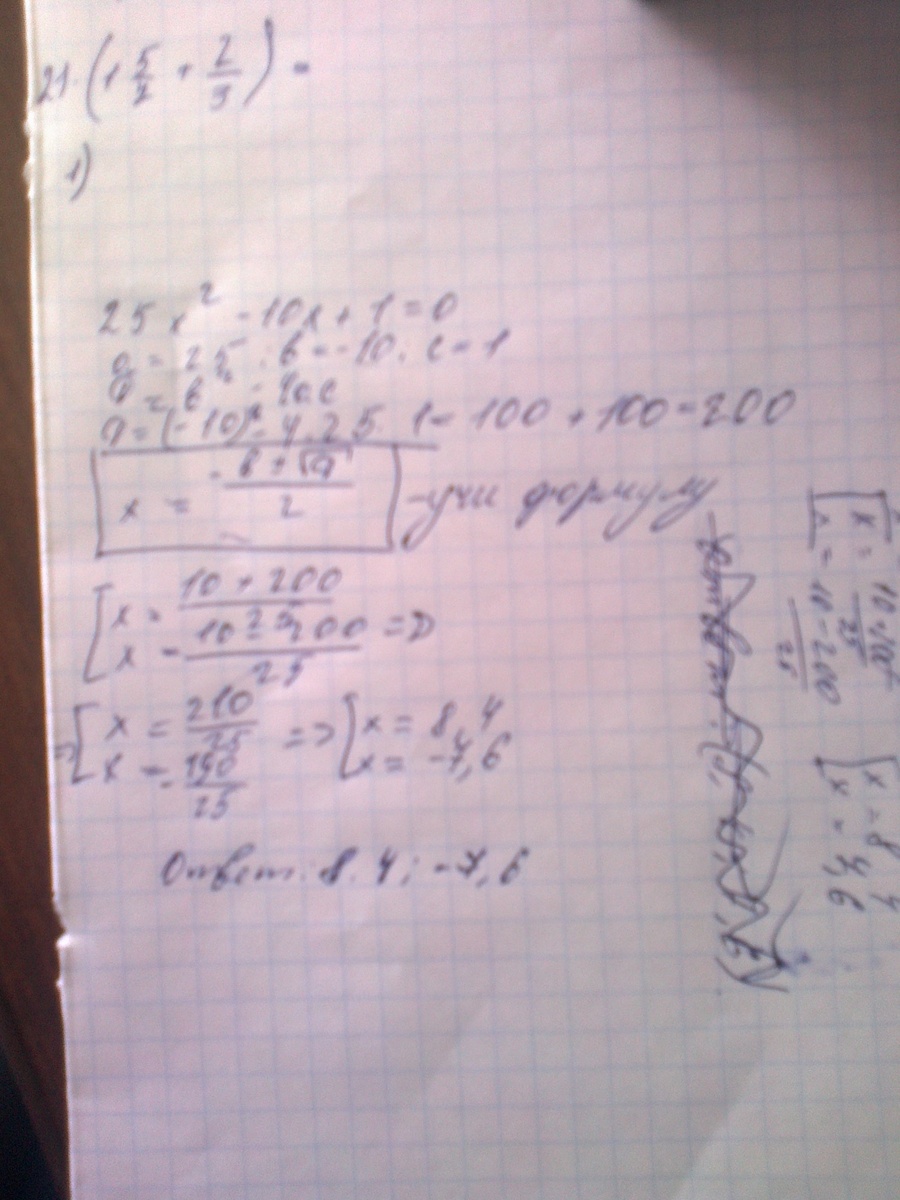 21·(1 5/7 + 2/3) =
1)
25x² - 10x + 1 = 0
a = 25; b = -10; c = 1
D = b² - 4ac
D = (-10)² - 4·25·1 = 100 + 100 = 200
x = -b ± √D / 2 - учи формулу
[x = 10 + 200 / 25
[x = 10 - 200 / 25 =>
=> [x = 210 / 25 => [x = 8,4
[x = -190 / 25 [x = -7,6
Ответ: 8,4; -7,6
x = 10 - 200 / 25
[x = 8,4